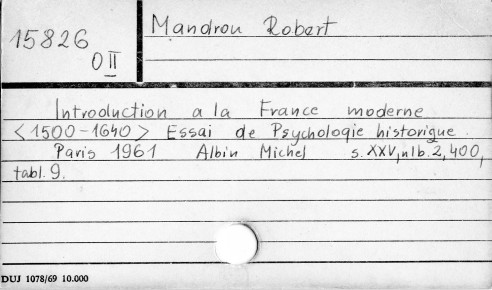 15826
O II
Mandrou Robert
Introduction a la France moderne
<1500-1640> Essai de Psychologie historique.
Paris 1961 Albin Michel s. XXV, nlb. 2, 400,
tabl. 9.
DUJ 1078/69 10.000